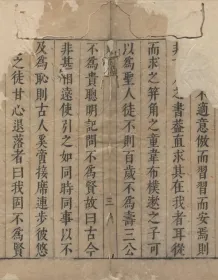 不適意倣而習習而安焉則
之書蓋直求其在我者耳從
而求之笄角之童韋布樸遬之子可
以為聖人徒不則百歲不為壽三公
三
不為貴聰明記問不為賢故曰古今
非甚相遠使引之如同時同事以不
及為恥則古人奚啻接席連步彼悠
之徒甘心退落者曰我固不為賢